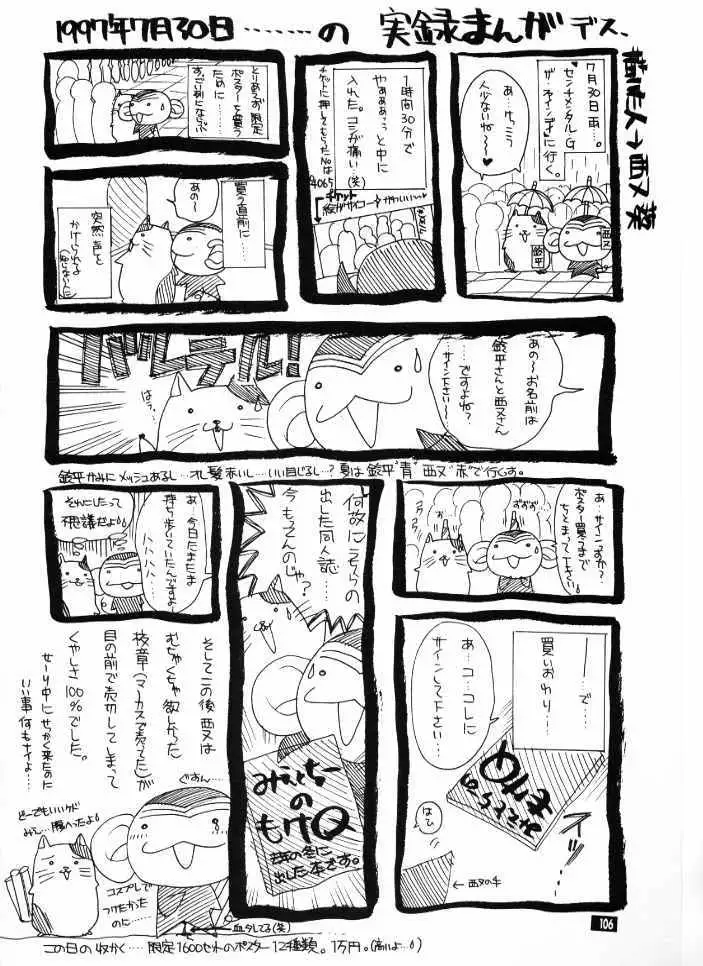 1997年7月30日………の 実録まんがデス、
描いた人→西又葵
7月30日雨…。
センチメンタルG
が・ネインディに
行く。
あ…けっこう
人少ないね〜♥
鈴平
西又
1時間30分で
やぁぁぁっっと中に
入れた。コシが痛い…(笑)
チケットに押してもらったNoは
4065
チケット
絵がサイコー かわいい〜♥
とりあえず限定
ポスターを買う
ために……
すっごい列にならぶ
買う直前に…
あの〜
突然声を
かけられる
(知らない人に)
バルテル!
はうっ…
あの〜お名前は
鈴平さんと西又さん
…ですよね?
サイン下さい〜
鈴平かみにメッシュあるし…オレ髪赤いし…いい目じるし…?夏は鈴平"青"西又"赤"で行くっす。
あ…サインっすか?
ポスター買うまで
ちとまって下さい。
ずずず…
――で…
買いおわり…
あ…コ…コレに
サインして下さい…
みえちーの
もけQ
スッ…
はひ
←西又の手
何故にうちらの
出した同人誌…
今もってんのじゃ?
みえちーの
もけQ
去年の冬に
出した本です。
あ、今日たまたま
持ち歩いていたんですよー
ハハハハ…
それにしたって
不思議だよ
そしてこの後西又は
むちゃくちゃ欲しかった
校章(マーカスで売ってた)が
目の前で売切してしまって
くやしさ100%でした。
せーり中にせっかく来たのに
いい事何もナイよ…
ぐすん…
どーでもいいケド
みゅ…腹へったよ
コスプレで
つけたかった
のに……
←血がでてる(笑)
この日の収かく……限定1600セットのポスター12種類。1万円。(高いよ…)
106